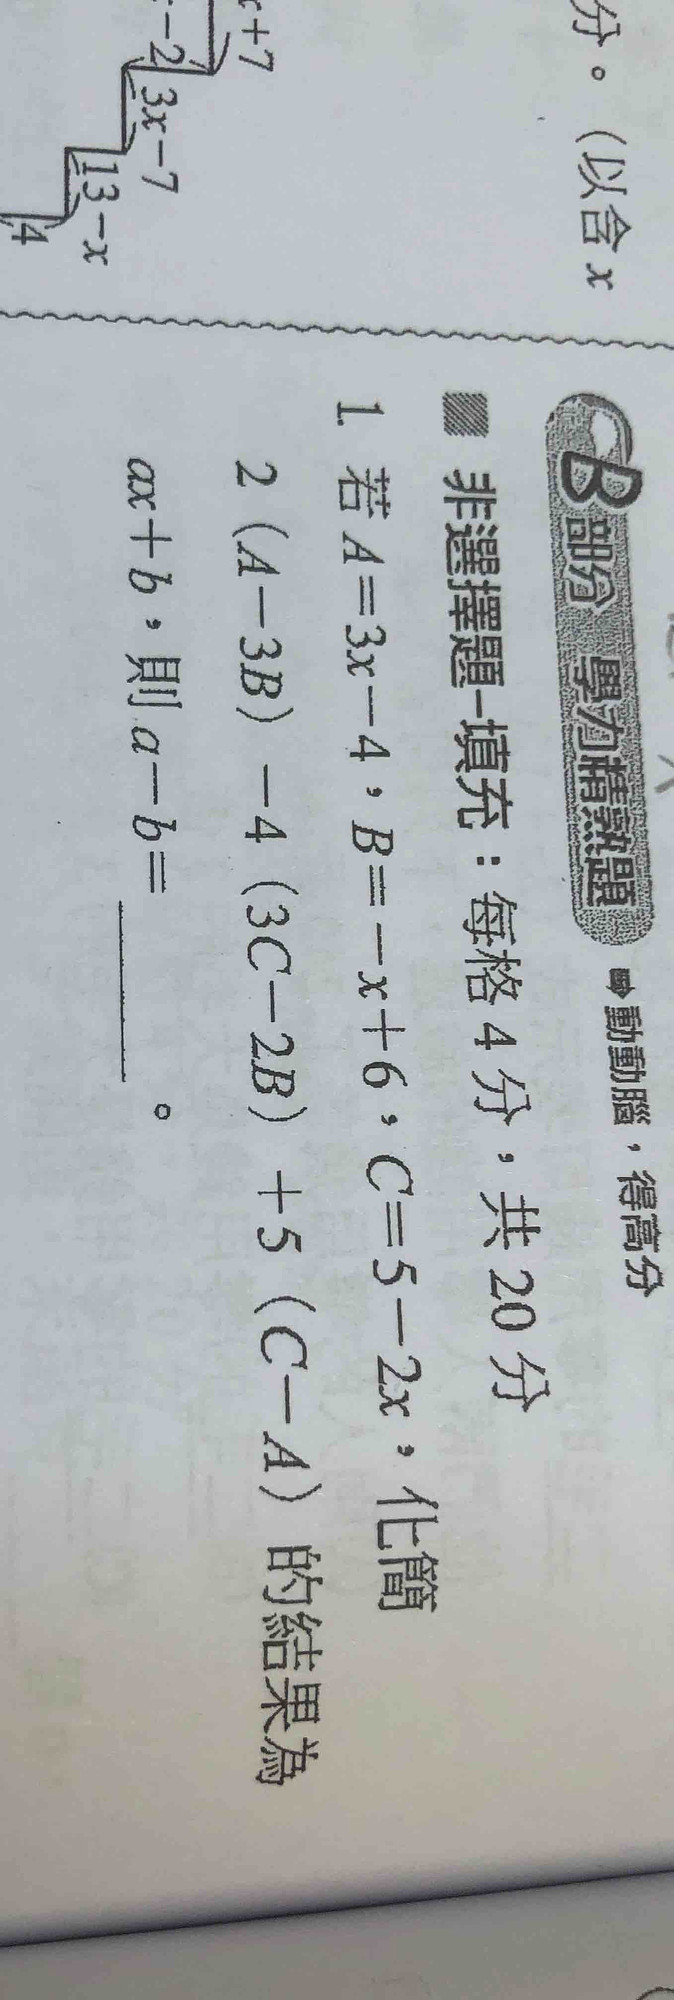 分。(以含x
x+7
-2
3x-7
13-x
4
B部分 學力精熟題 ➡動動腦，得高分
非選擇題-填充：每格4分，共20分
1. 若A=3x-4，B=-x+6，C=5-2x，化簡
2(A-3B)-4(3C-2B)+5(C-A)的結果為
ax+b，則a-b=______。